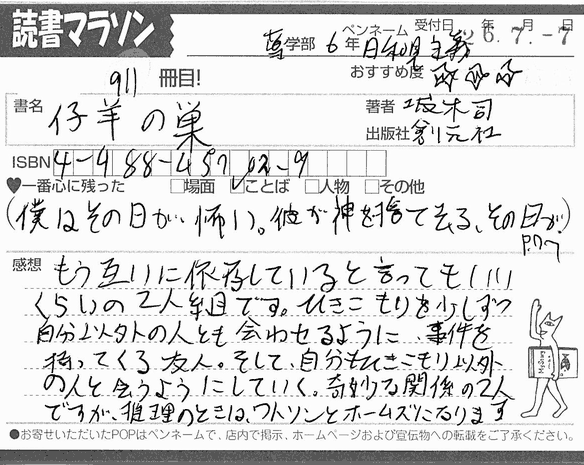 読書マラソン
学部 6年 ペンネーム 日和見主義
受付日 年 月 日
26.7.-7
911 冊目!
おすすめ度 ☆☆☆
書名 仔羊の巣
著者 坂木司
出版社 創元社
ISBN 4-488-45702-9
♥一番心に残った □場面 ☑ことば □人物 □その他
(僕はその日が、怖い。彼が神を捨て去る、その日が)
感想 もう互いに依存していると言ってもいい
くらいの2人組です。ひきこもりを少しずつ
自分以外の人とも会わせるように、事件を
持ってくる友人。そして、自分もひきこもり以外
の人と会うようにしていく。奇妙な関係の2人
ですが、推理のときは、ワトソンとホームズになります
●お寄せいただいたPOPはペンネームで、店内で掲示、ホームページおよび宣伝物への転載をご了承ください。